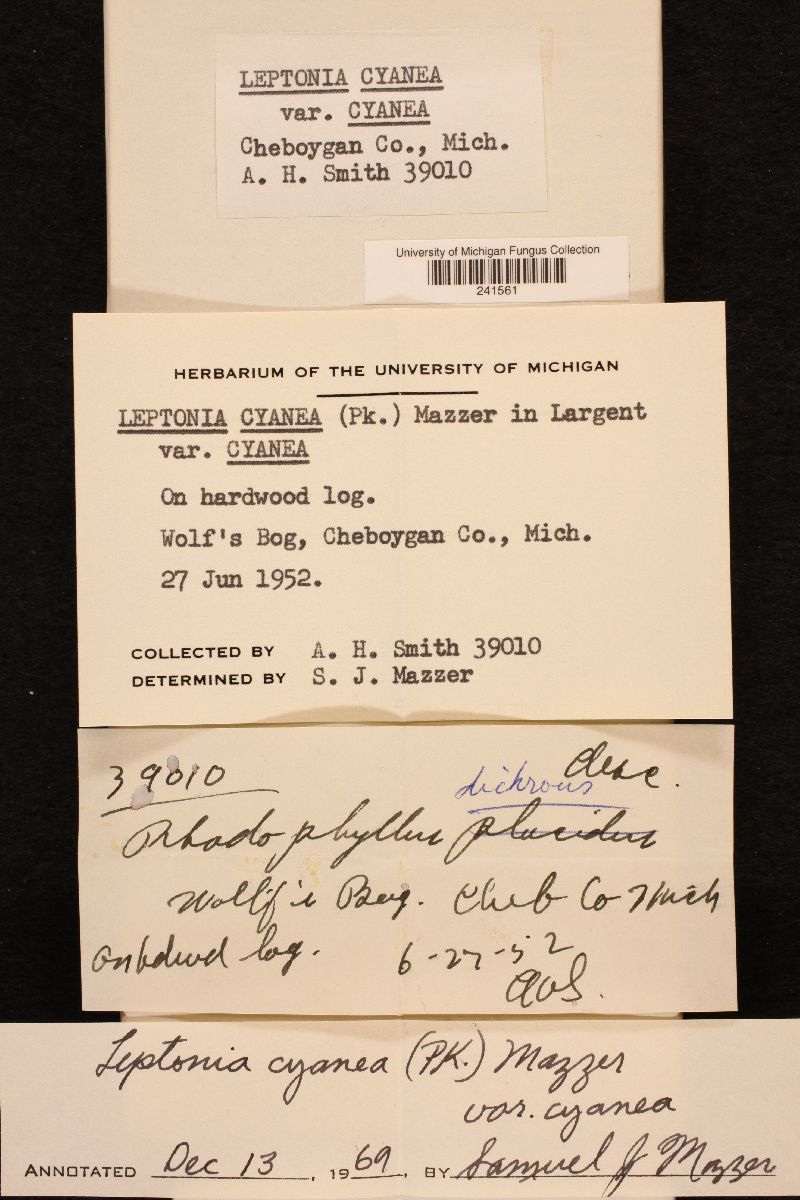 LEPTONIA CYANEA
var. CYANEA
Cheboygan Co., Mich.
A. H. Smith 39010
University of Michigan Fungus Collection
241561
HERBARIUM OF THE UNIVERSITY OF MICHIGAN
LEPTONIA CYANEA (Pk.) Mazzer in Largent
var. CYANEA
On hardwood log.
Wolf's Bog, Cheboygan Co., Mich.
27 Jun 1952.
COLLECTED BY A. H. Smith 39010
DETERMINED BY S. J. Mazzer
39010 desc.
dichrous
Rhodophyllus placidus
Wolf's Bog. Cheb Co Mich
on hdwd log. 6-27-52
Leptonia cyanea (PK.) Mazzer
var. cyanea
ANNOTATED Dec 13, 1969, BY Samuel J Mazzer